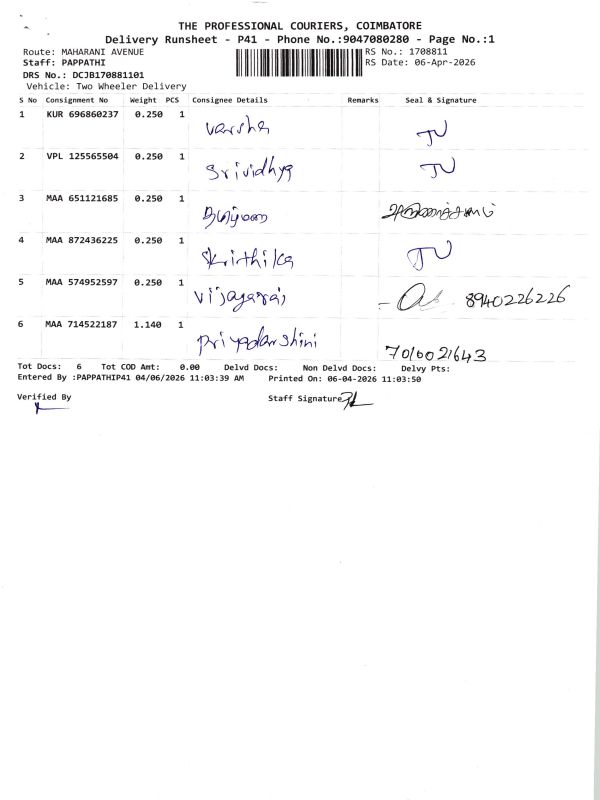 THE PROFESSIONAL COURIERS, COIMBATORE
Delivery Runsheet - P41 - Phone No.:9047080280 - Page No.:1
Route: MAHARANI AVENUE RS No.: 1708811
Staff: PAPPATHI RS Date: 06-Apr-2026
DRS No.: DCJB170881101
Vehicle: Two Wheeler Delivery
S No Consignment No Weight PCS Consignee Details Remarks Seal & Signature
1 KUR 696860237 0.250 1 Varsha
2 VPL 125565504 0.250 1 Srividhya
3 MAA 651121685 0.250 1
4 MAA 872436225 0.250 1 Skrithika
5 MAA 574952597 0.250 1 Vijayaraj 8940226226
6 MAA 714522187 1.140 1 Priyadarshini 7010021643
Tot Docs: 6 Tot COD Amt: 0.00 Delvd Docs: Non Delvd Docs: Delvy Pts:
Entered By :PAPPATHIP41 04/06/2026 11:03:39 AM Printed On: 06-04-2026 11:03:50
Verified By Staff Signature